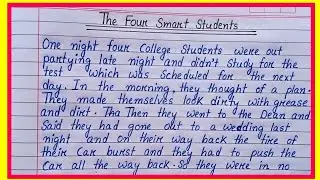 The Four Smart Students
One night four College Students were out
partying late night and didn't Study for the
test which was Scheduled for the next
day. In the morning, they thought of a plan.
They made themselves look dirty with grease
and dirt. Tha Then they went to the Dean and
Said they had gone out to a wedding last
night and on their way back the tire of
their Car burst and they had to push the
Car all the way back. So they were in no